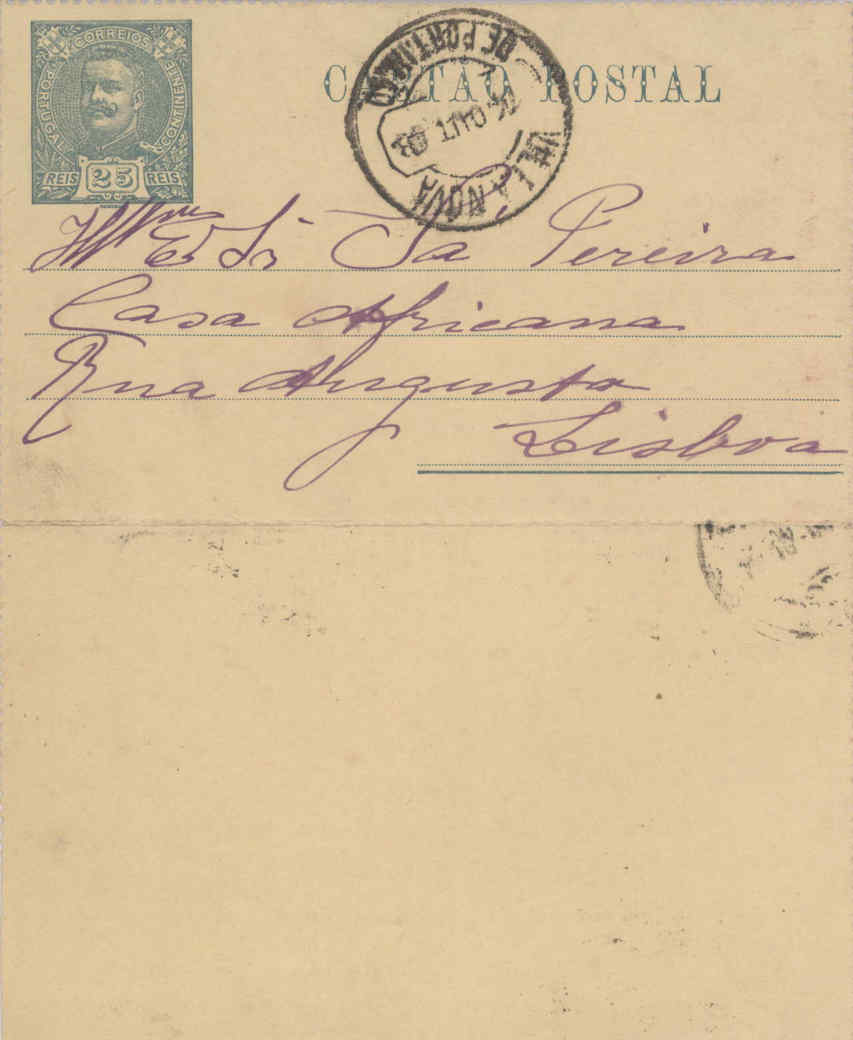 CORREIOS
PORTUGAL
CONTINENTE
REIS 25 REIS
CARTÃO POSTAL
VILLA NOVA
DE PORTIMÃO
OUT 03
Illmo Ex Sr Sá Pereira
Casa Africana
Rua Augusta
Lisboa